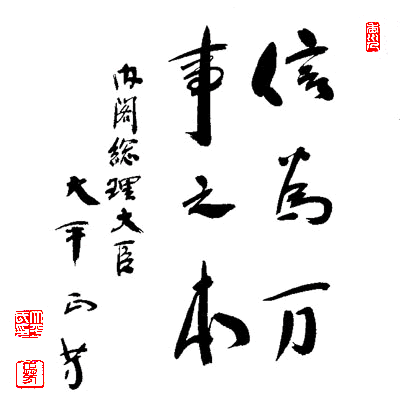 信為万
事之本
内閣総理大臣
大平正芳